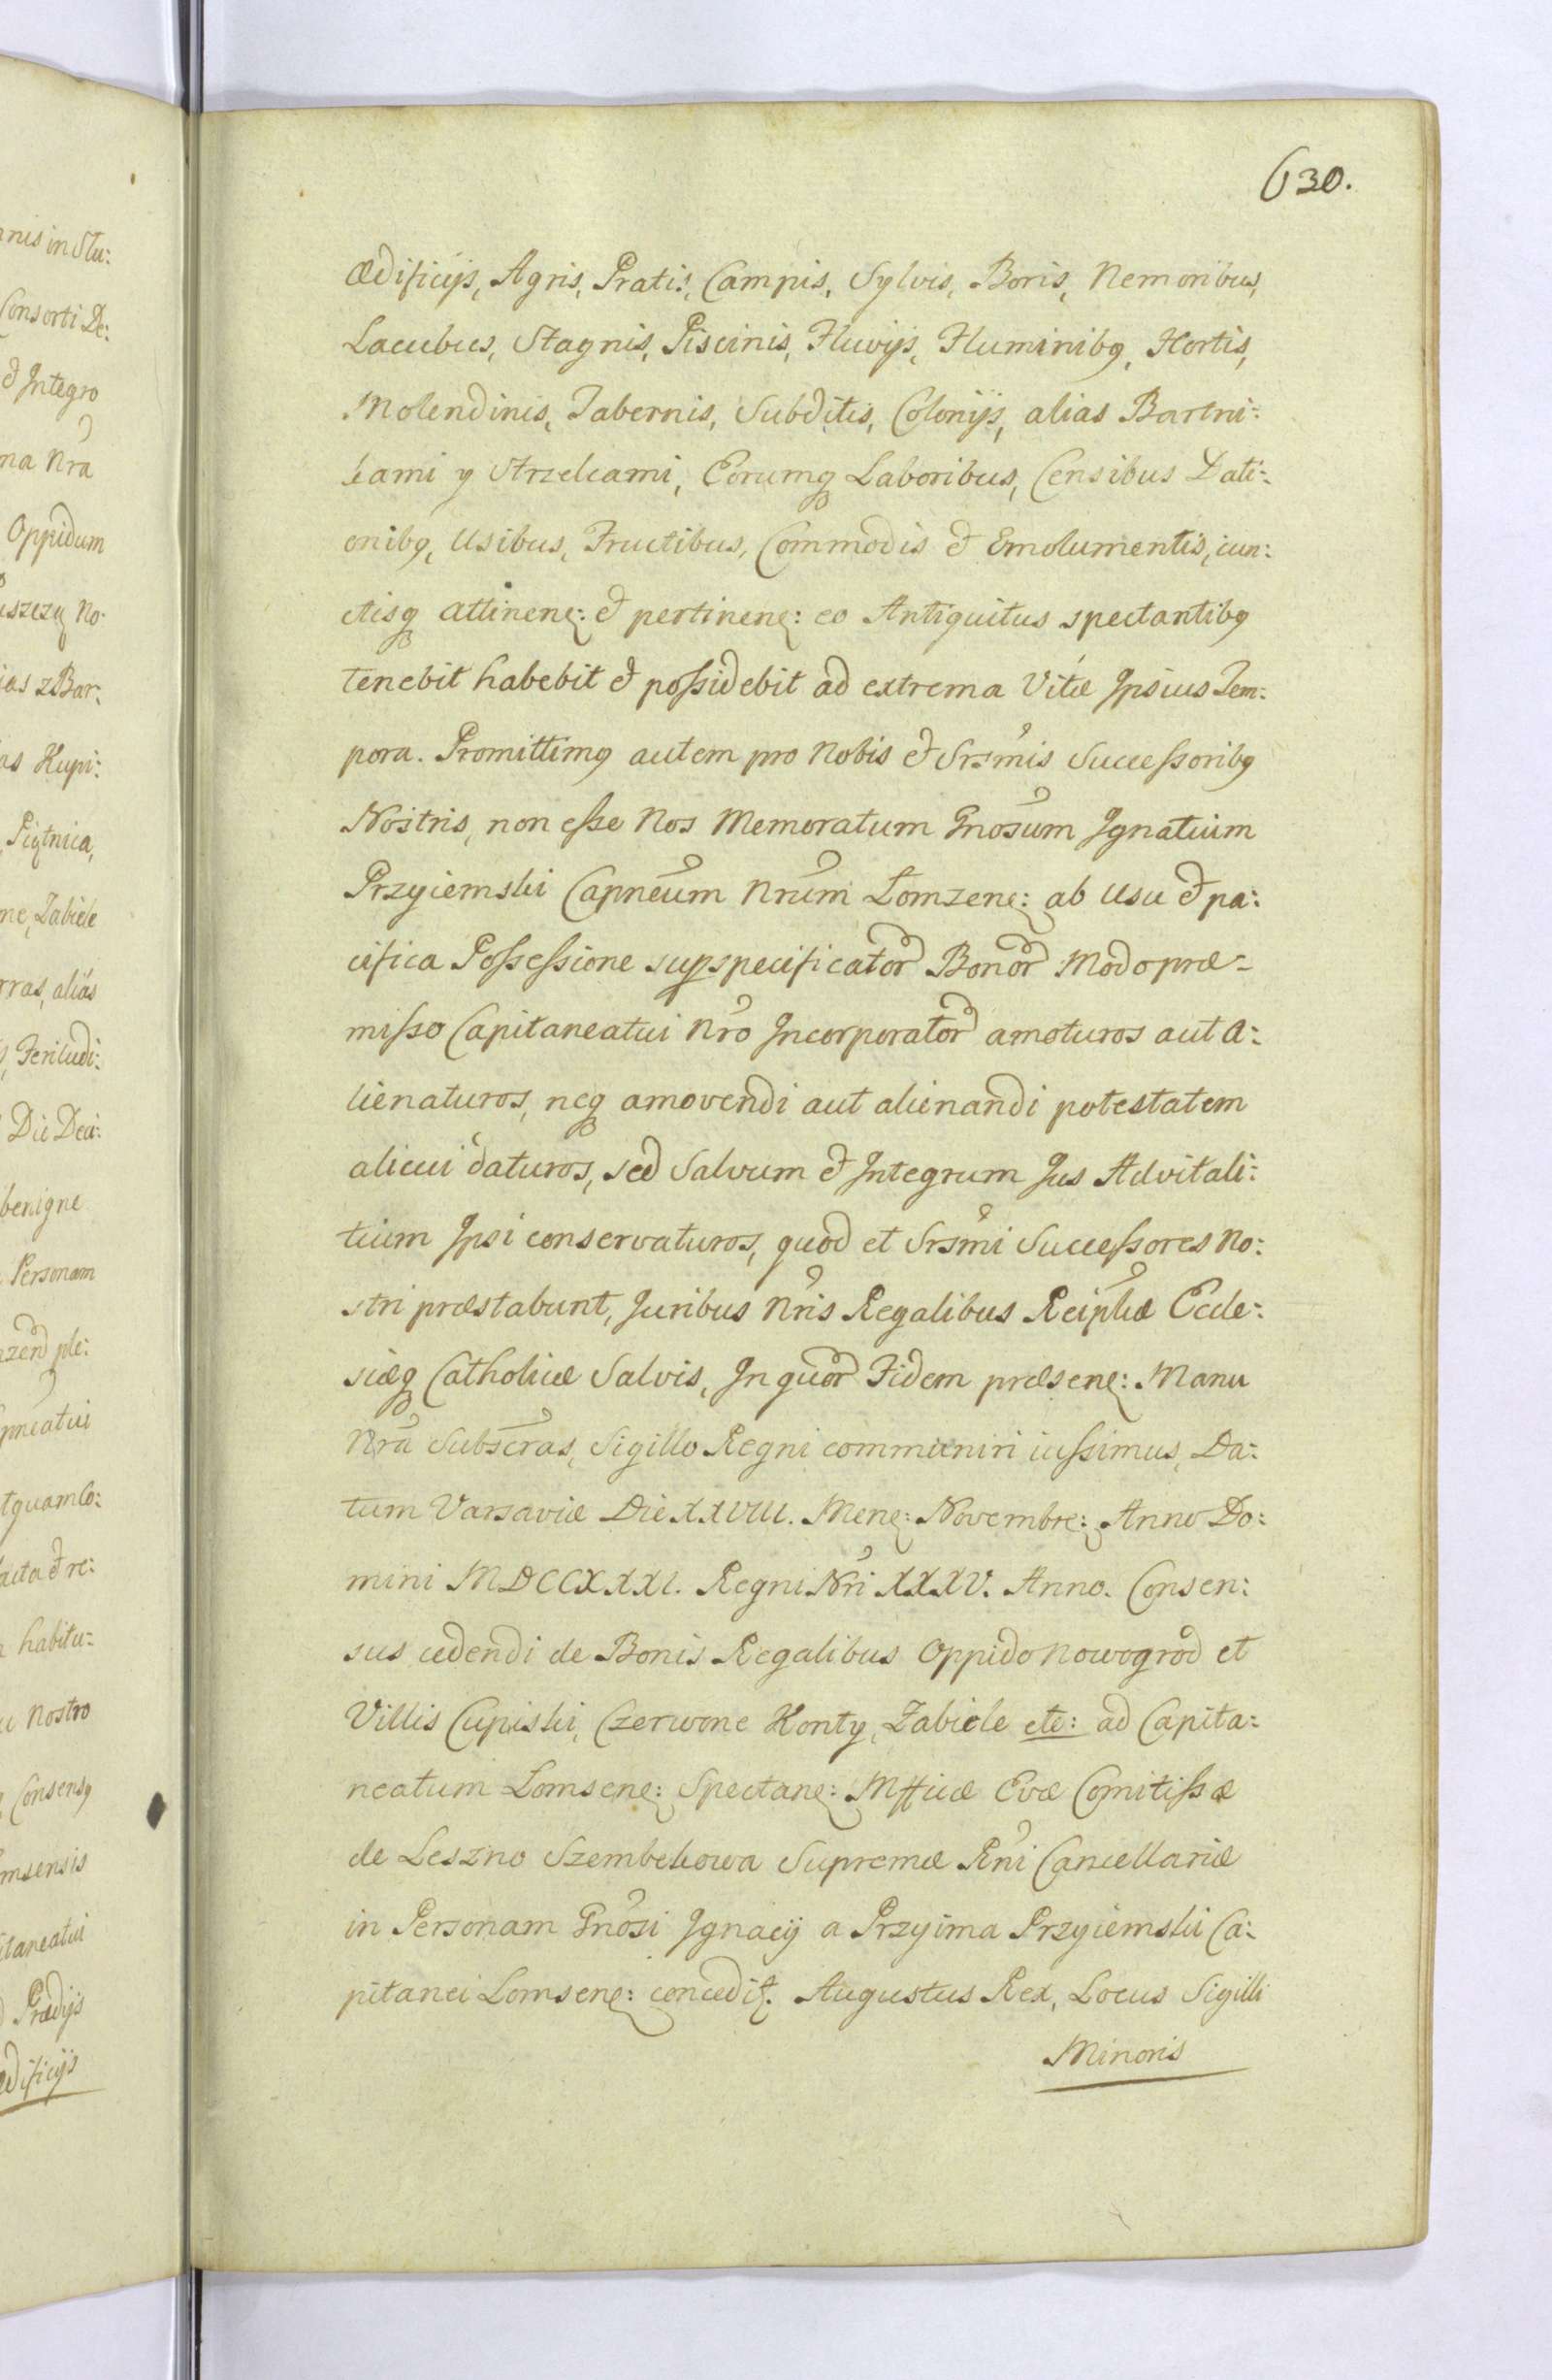 630.
Ædificijs, Agris, Pratis, Campis, Sylvis, Boris, Nemoribus,
Lacubus, Stagnis, Piscinis, Fluvijs, Fluminibꝯ, Hortis,
Molendinis, Tabernis, Subditis, Colonijs, alias Bartni:
kami y Strzelcami, Eorumqꝫ Laboribus, Censibus Dati:
onibꝯ, Usibus, Fructibus, Commodis & Emolumentis, cun:
ctisqꝫ attinenꝭ: & pertinenꝭ: eo Antiquitus spectantibꝯ
tenebit habebit & possidebit ad extrema Vitæ Ipsius Tem:
pora. Promittimꝯ autem pro Nobis & Srsmis Successoribꝯ
Nostris, non esse Nos Memoratum Gnosum Ignatium
Przyiemski Capneum Nrum Łomzenꝭ: ab Usu & pa:
cifica Possessione supspecificator Bonor Modo præ-
misso Capitaneatui Nro Incorporator amoturos aut a:
lienaturos, neqꝫ amovendi aut alienandi potestatem
alicui daturos, sed Salvum & Integrum Jus Advitali:
tium Ipsi conservaturos, quod et Srsmi Successores No:
stri præstabunt, Juribus Nris Regalibus Reiplicæ Eccle:
siæqꝫ Catholicæ Salvis, In quor Fidem præsenꝭ: Manu
Nra Subscras, Sigillo Regni communiri iussimus, Da:
tum Varsaviæ Die XXVIII. Menꝭ: Novembrꝭ: Anno Do:
mini MDCCXXXI. Regni Nri XXXV. Anno. Consen:
sus cedendi de Bonis Regalibus Oppido Nowogrod et
Villis Cupiski, Czerwone Konty, Zabiele etc: ad Capita:
neatum Lomsenꝭ: Spectanꝭ: Mfficæ Evæ Comitissæ
de Leszno Szembekowa Supremæ Rni Cancellariæ
in Personam Gnosi Ignacij a Przyima Przyiemski Ca:
pitanei Lomsenꝭ: concedit. Augustus Rex, Locus Sigilli
Minoris